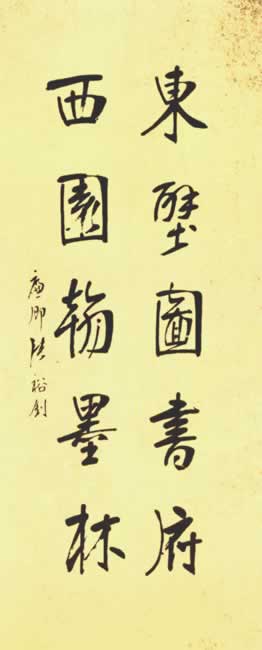 東壁圖書府
西園翰墨林
廉卿張裕釗